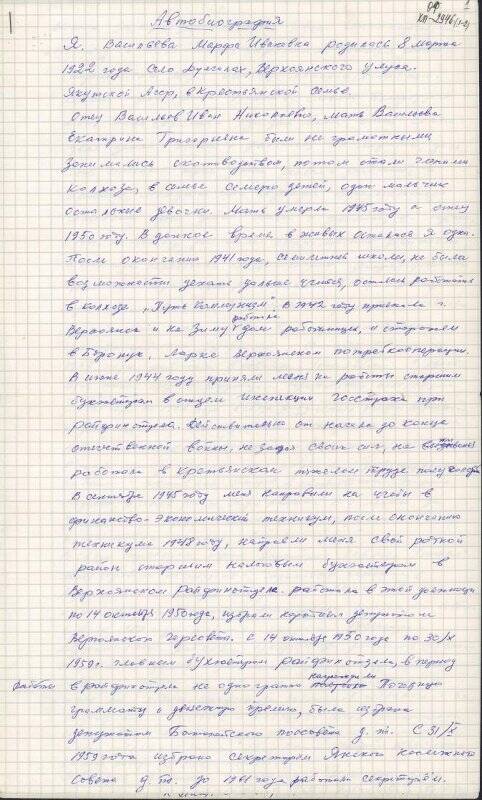 Автобиография
1
ОФ
КП-2946 (1-2)
1
Я, Васильева Марфа Ивановна родилась 8 марта
1922 года село Дулгалах, Верхоянского улуса.
Якутской Асср, в крестьянской семье.
Отец Васильев Иван Николаевич, мать Васильева
Екатерина Григорьевна были не грамотными
занимались скотводством, потом стали членами
колхоза, в семье семеро детей, один мальчик
остальные девочки. Мать умерла 1945 году а отец
1950 году. В данное время в живых осталась я одна.
После окончания 1941 года, семилетней школы, не была
возможности уехать дальше учиться, осталась работать
в колхозе "Путь Коммунизм". В 1942 году приехала г.
Верхоянск и на зиму работала дом работницей, и сторожем
в Боронук, Ларке Верхоянском потребкооперации.
В июне 1944 году приняли меня на работы старшим
бухгалтером в отдел инспекции Госстраха при
райфинотдела. Действительно от начала до конца
отечественной войны, не щадя своих сил, на
работала в крестьянском тяжелом труде
В сентябре 1945 году меня направили на учебы в
финансово-экономический техникум, после окончания
техникума 1948 году, направили меня свой родной
район старшим налоговым бухгалтером в
Верхоянском райфинотделе. работала в этой должности
по 14 октября 1950 года, избрали депутатом
Верхоянского горсовета. С 14 октября 1950 года по 30/X
1959 г. главным бухгалтером райфинотдела, в период
работы в райфинотделе не одно кратно награждали Похвальную
грамоту и денежную премию, была избрана
депутатом поссовета д.т. С 31/X
1959 года избрана секретарем Янского наслежного
Совета д.т. до 1961 года работала секретарём.